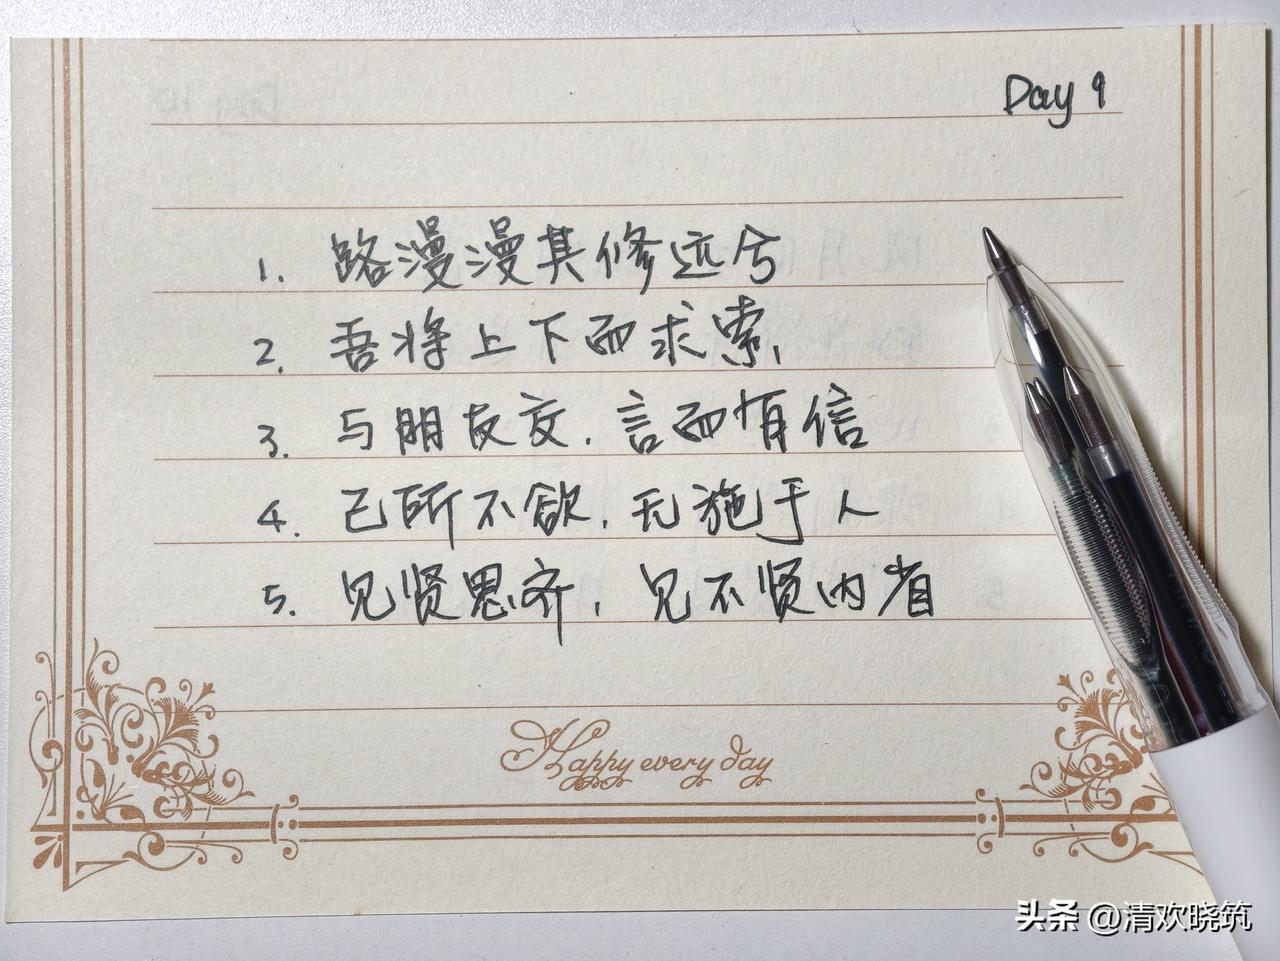 Day 9
1. 路漫漫其修远兮
2. 吾将上下而求索,
3. 与朋友交,言而有信
4. 己所不欲,无施于人
5. 见贤思齐,见不贤内省
Happy every day
头条 @清欢晓筑